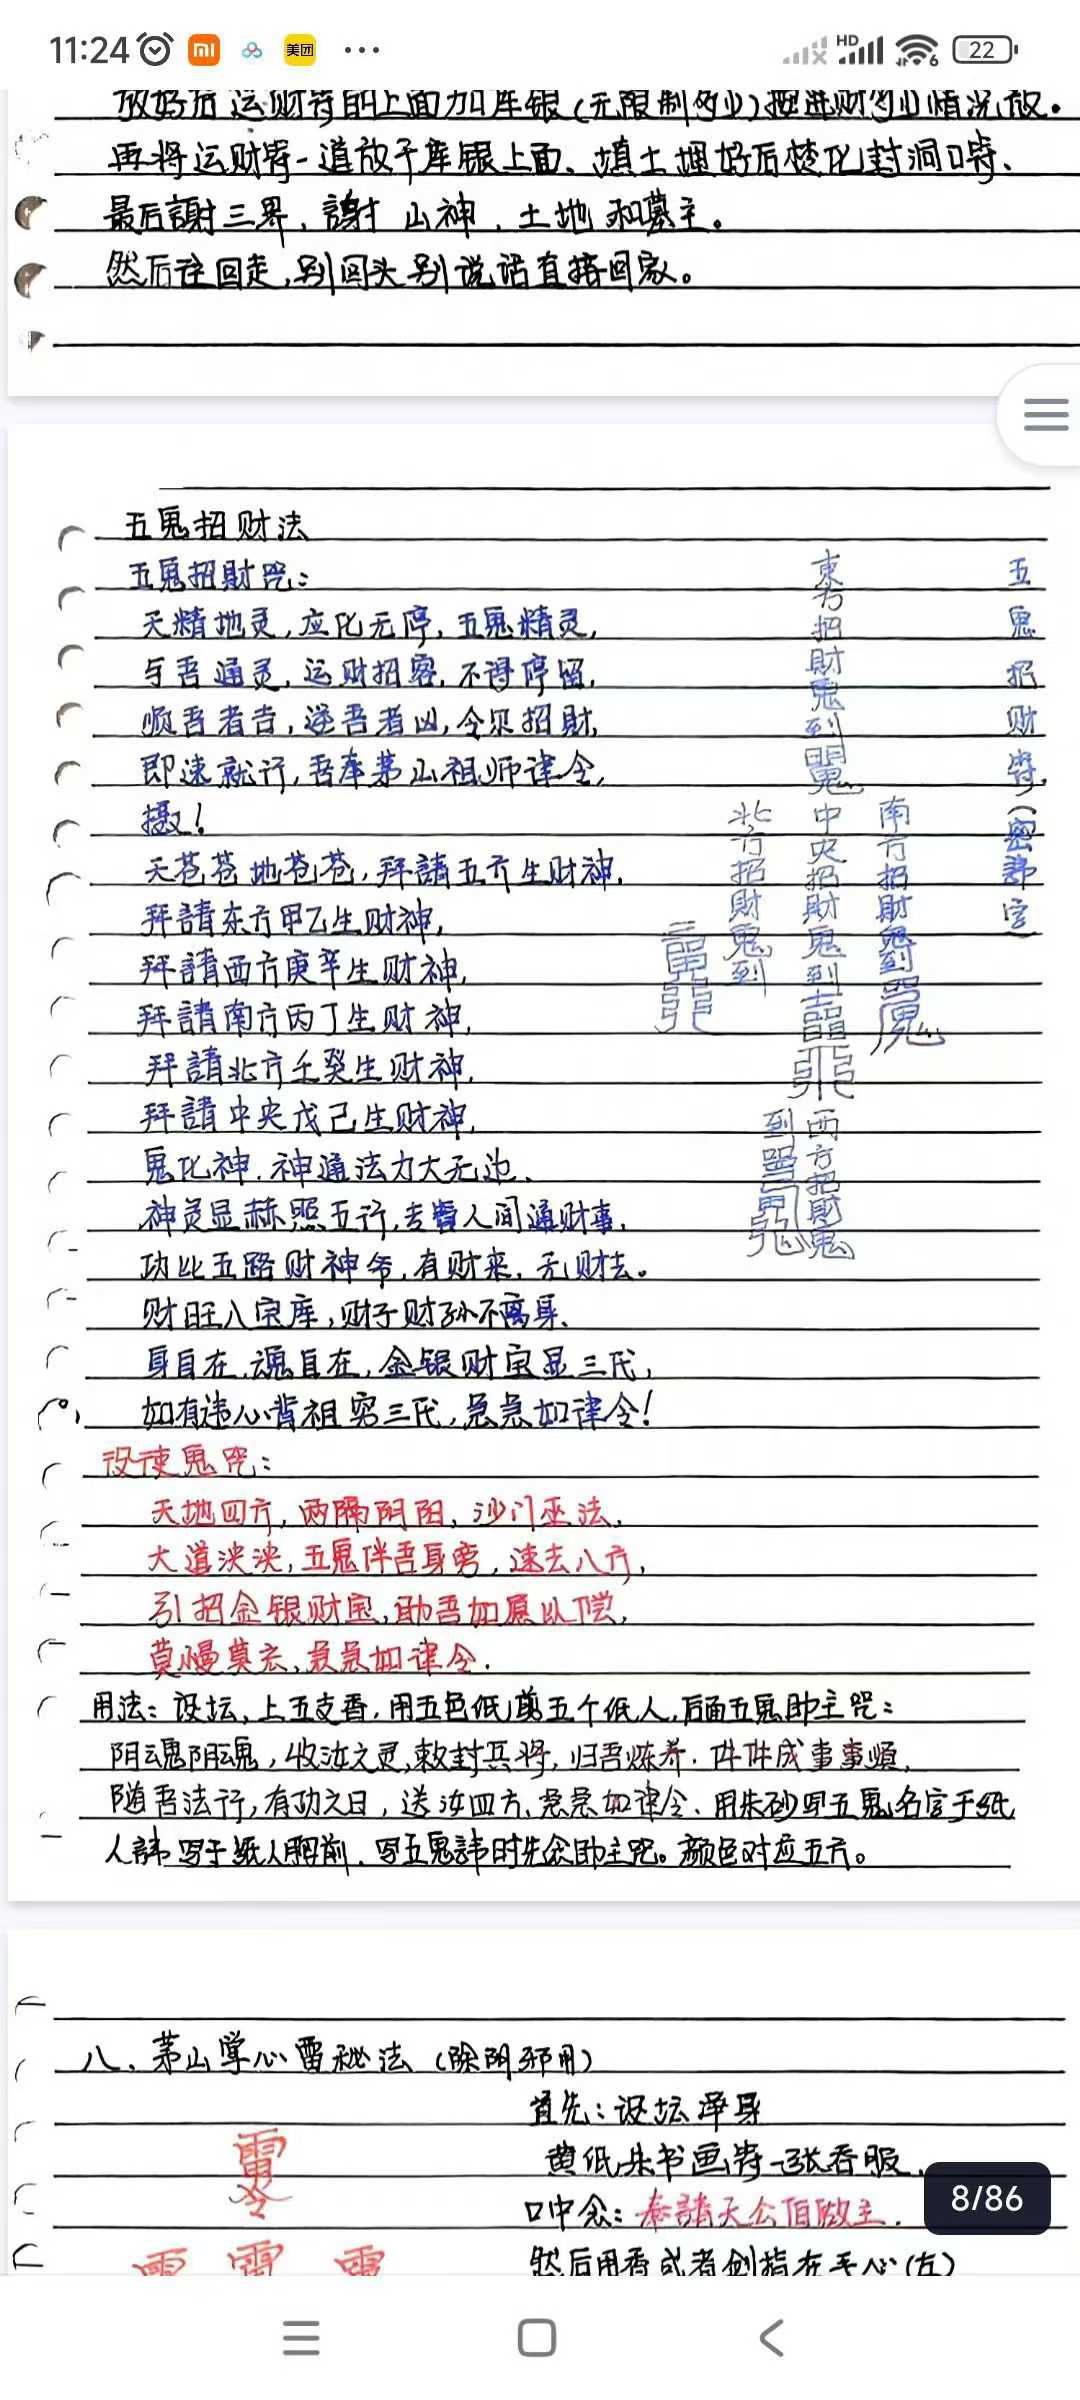 11:24
美团
HD
6
22
放好后运财符的上面加库银(无限制多少)按进财多少情况放。
再将运财符一道放于库银上面、填土埋好后焚化封洞口符、
最后謝三界,謝山神、土地和墓主。
然后往回走,别回头别说话直接回家。
五鬼招财法
五鬼招財咒:
天精地灵,应化无停,五鬼精灵,
与吾通灵,运财招客,不得停留,
顺吾者吉,逆吾者凶,令尔招財,
即速就行,吾奉茅山祖师律令,
摄!
天苍苍地苍苍,拜請五方生财神,
拜請东方甲乙生财神,
拜請西方庚辛生财神,
拜請南方丙丁生财神,
拜請北方壬癸生财神,
拜請中央戊己生财神,
鬼化神.神通法力大无边、
神灵显赫照五行,专管人间通财事,
功比五路财神爷,有财来,无财去。
财旺八宝库,财子财孙不离身、
身自在,魂自在,金银财宝显三代,
如有违心背祖穷三代,急急如律令!
五鬼招财符,(密諱字)
東方招財鬼到
南方招財鬼到
中央招財鬼到
北方招財鬼到
西方招財鬼到
役使鬼咒:
天地四方,两隔阴阳,沙门巫法,
大道泱泱,五鬼伴吾身旁,速去八方,
引招金银财宝,助吾如愿以偿,
莫慢莫玄,急急如律令.
用法:设坛,上五支香,用五色纸剪五个纸人,后面五鬼助主咒:
阴魂阴魂,收汝之灵,敕封兵将,归吾炼养.件件成事事順,
随吾法行,有功之日,送汝四方,急急如律令.用朱砂写五鬼名字于纸
人諱写于纸人胸前.写五鬼諱时先念助主咒。颜色对应五方。
八、茅山掌心雷秘法(除阴邪用)
首先:设坛净身
黄纸朱书画符一张吞服、
口中念:奉請天公伯做主.
然后用香或者剑指在手心(左)
雷令
雷 雷 雷
8/86